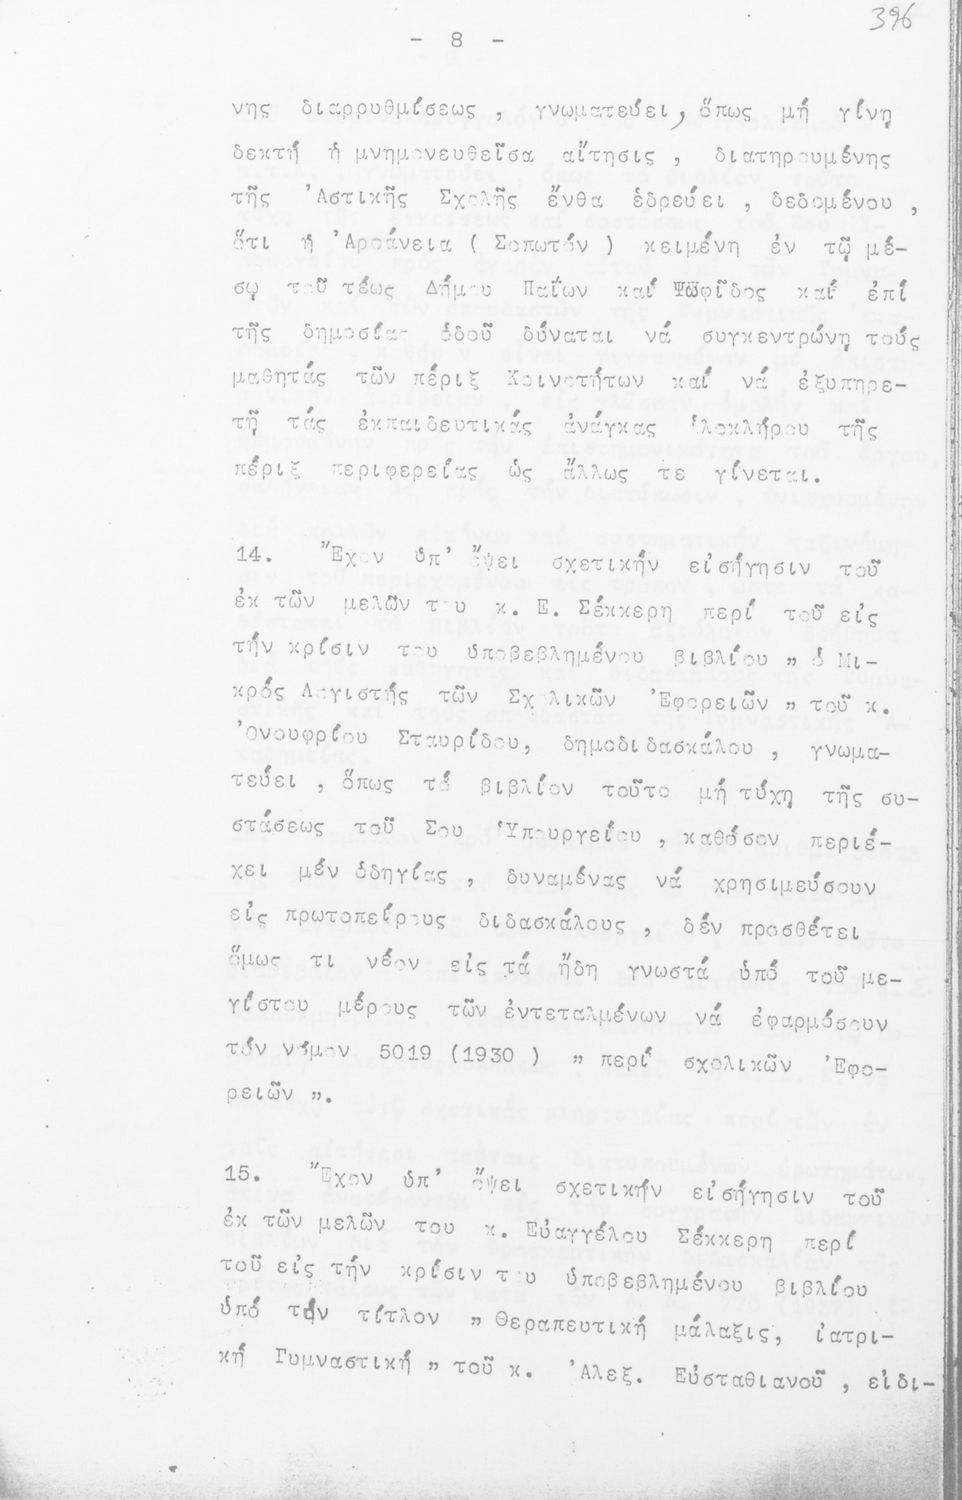 396
- 8 -
νης διαρρυθμίσεως , γνωματεύει, ὅπως μή γίνῃ
δεκτή ἡ μνημονευθεῖσα αἴτησις , διατηρουμένης
τῆς Ἀστικῆς Σχολῆς ἔνθα ἑδρεύει , δεδομένου ,
ὅτι ἡ Ἀροάνεια ( Σοπωτόν ) κειμένη ἐν τῷ μέ-
σῳ τοῦ τέως Δήμου Παΐων καί Ψωφῖδος καί ἐπί
τῆς δημοσίας ὁδοῦ δύναται νά συγκεντρώνῃ τούς
μαθητάς τῶν πέριξ Κοινοτήτων καί νά ἐξυπηρε-
τῇ τάς ἐκπαιδευτικάς ἀνάγκας ὁλοκλήρου τῆς
πέριξ περιφερείας ὡς ἄλλως τε γίνεται.
14. Ἔχον ὑπ' ὄψει σχετικήν εἰσήγησιν τοῦ
ἐκ τῶν μελῶν του κ. Ε. Σέκκερη περί τοῦ εἰς
τήν κρίσιν του ὑποβεβλημένου βιβλίου " ὁ Μι-
κρός Λογιστής τῶν Σχολικῶν Ἐφορειῶν " τοῦ κ.
Ὀνουφρίου Σταυρίδου, δημοδιδασκάλου , γνωμα-
τεύει , ὅπως τό βιβλίον τοῦτο μή τύχῃ τῆς συ-
στάσεως τοῦ Σου Ὑπουργείου , καθόσον περιέ-
χει μέν ὁδηγίας , δυναμένας νά χρησιμεύσουν
εἰς πρωτοπείρους διδασκάλους , δέν προσθέτει
ὅμως τι νέον εἰς τά ἤδη γνωστά ὑπό τοῦ με-
γίστου μέρους τῶν ἐντεταλμένων νά ἐφαρμόσουν
τόν νόμον 5019 (1930 ) " περί σχολικῶν Ἐφο-
ρειῶν ".
15. Ἔχον ὑπ' ὄψει σχετικήν εἰσήγησιν τοῦ
ἐκ τῶν μελῶν του κ. Εὐαγγέλου Σέκκερη περί
τοῦ εἰς τήν κρίσιν του ὑποβεβλημένου βιβλίου
ὑπό τόν τίτλον " Θεραπευτική μάλαξις, ἰατρι-
κή Γυμναστική " τοῦ κ. Ἀλεξ. Εὐσταθιανοῦ , εἰδι-